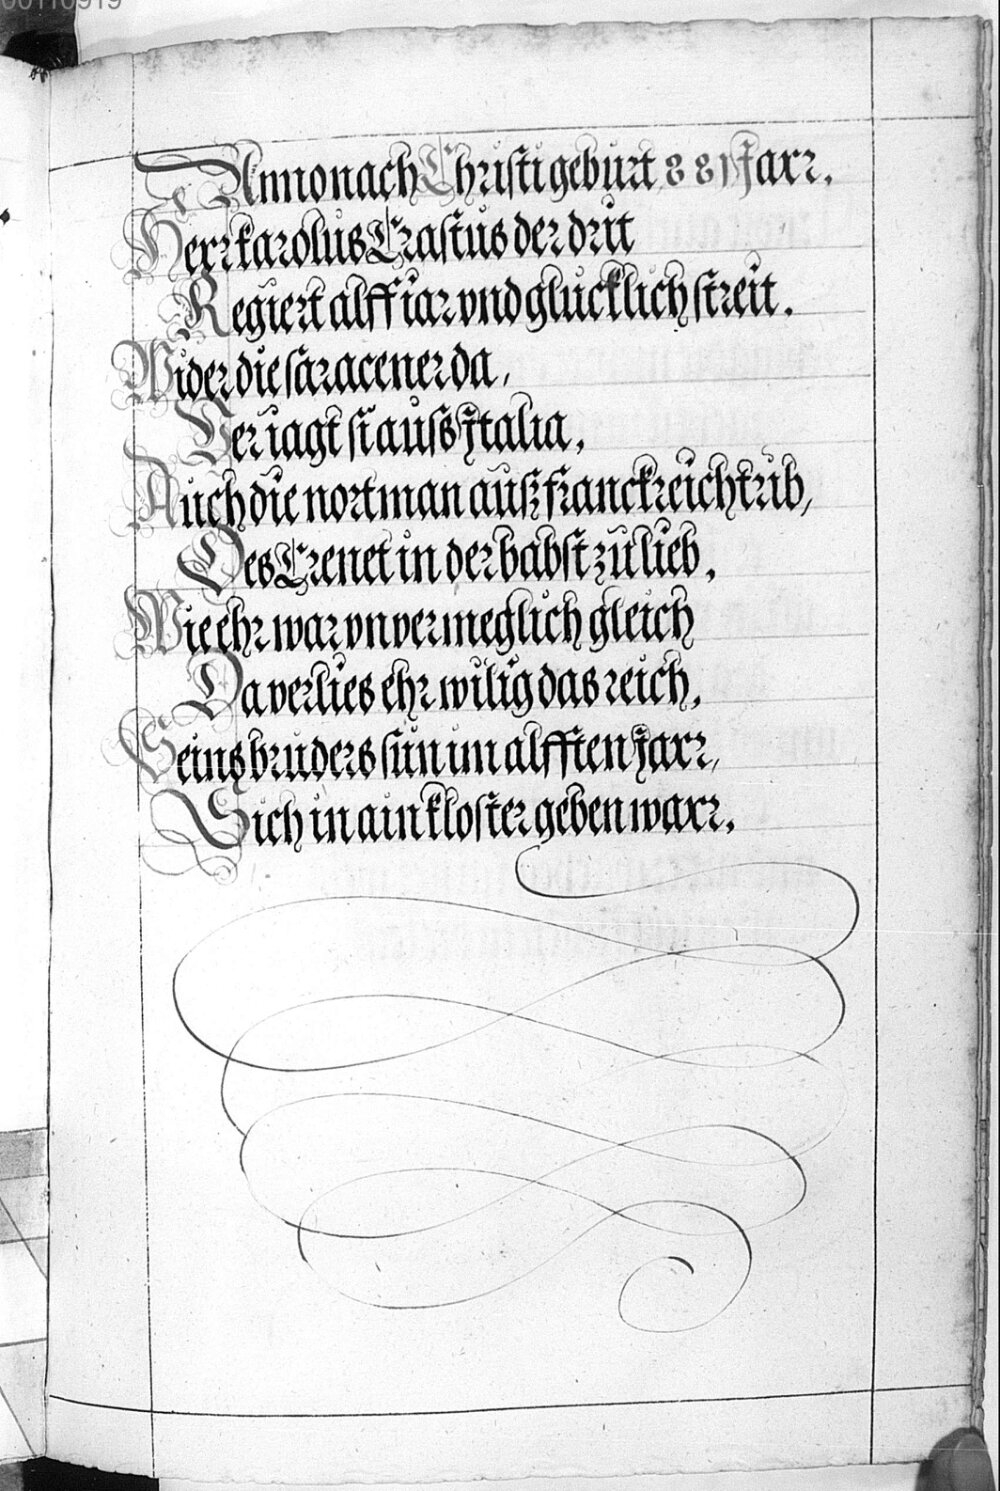 00110919
Anno nach Christi geburt 881 Jarr.
Herr karolus Crastus der drit
Regiert alff iar vnd glucklich streit.
Wider die saracener da,
Ver iagt si auss Jtalia,
Auch die nortman auß franckreich trib,
Des Crenet in der babst zu lieb,
Wie ehr war vnvermeglich gleich
Da verlies ehr wilig das reich,
Seins bruders sun im alfften Jarr,
Sich in ain kloster geben warr.